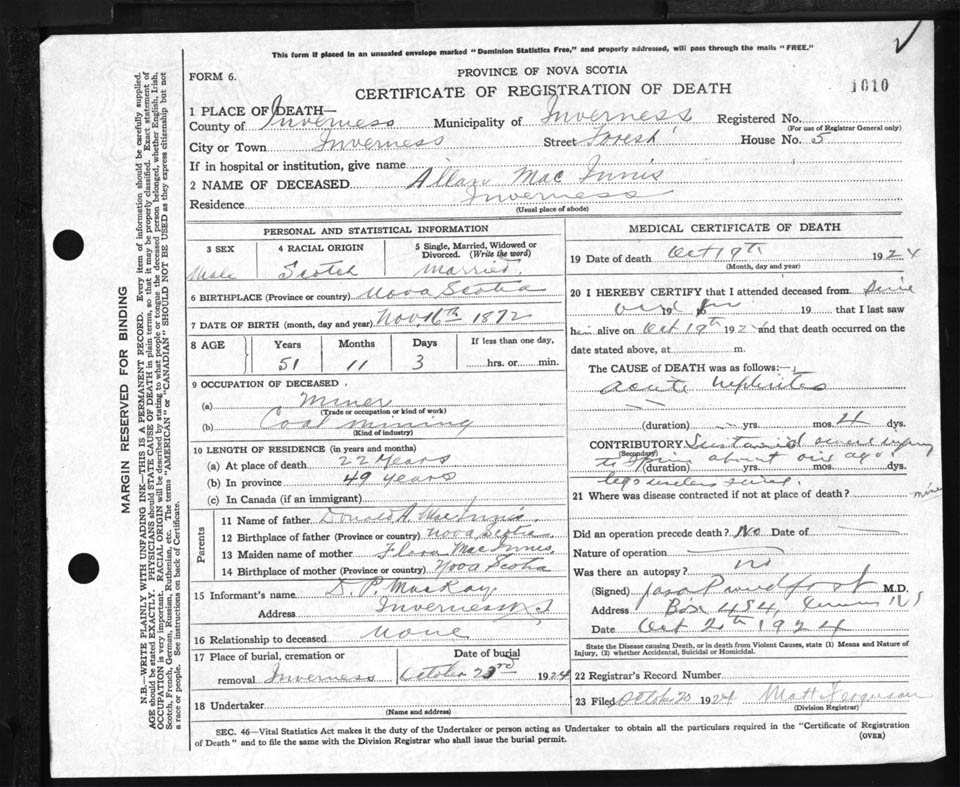 This form if placed in an unsealed envelope marked "Dominion Statistics Free," and properly addressed, will pass through the mails "FREE."
FORM 6.
PROVINCE OF NOVA SCOTIA
CERTIFICATE OF REGISTRATION OF DEATH
1010
1 PLACE OF DEATH—
County of Inverness Municipality of Inverness Registered No.
(For use of Registrar General only)
City or Town Inverness Street Forest House No. 5
If in hospital or institution, give name
2 NAME OF DECEASED Allan Mac Innis
Residence Inverness
(Usual place of abode)
PERSONAL AND STATISTICAL INFORMATION
3 SEX 4 RACIAL ORIGIN 5 Single, Married, Widowed or Divorced. (Write the word)
Male Scotch Married.
6 BIRTHPLACE (Province or country) Nova Scotia
7 DATE OF BIRTH (month, day and year) Nov. 16th 1872
8 AGE Years Months Days If less than one day,
51 11 3 hrs. or min.
9 OCCUPATION OF DECEASED
(a) Miner
(Trade or occupation or kind of work)
(b) Coal mining
(Kind of industry)
10 LENGTH OF RESIDENCE (in years and months)
(a) At place of death 22 Years
(b) In province 49 years
(c) In Canada (if an immigrant)
Parents
11 Name of father Donald A. MacInnis.
12 Birthplace of father (Province or country) Nova Scotia
13 Maiden name of mother Flora MacInnis
14 Birthplace of mother (Province or country) Nova Scotia
15 Informant's name D. P. MacKay,
Address Inverness N S
16 Relationship to deceased None
17 Place of burial, cremation or removal Inverness
Date of burial October 23rd 1924
18 Undertaker
(Name and address)
MEDICAL CERTIFICATE OF DEATH
19 Date of death Oct 19th 1924
(Month, day and year)
20 I HEREBY CERTIFY that I attended deceased from
19 19 that I last saw
him alive on Oct 19th 1924 and that death occurred on the
date stated above, at m.
The CAUSE of DEATH was as follows:—
acute nephritis
(duration) yrs. mos. 4 dys.
CONTRIBUTORY Sustained injury
(Secondary)
to spine about ago.
(duration) yrs. mos. dys.
21 Where was disease contracted if not at place of death? mine
Did an operation precede death? No Date of
Nature of operation
Was there an autopsy? no
(Signed) M.D.
Address Box 454, N S
Date Oct 20th 1924
State the Disease causing Death, or in death from Violent Causes, state (1) Means and Nature of Injury, (2) whether Accidental, Suicidal or Homicidal.
22 Registrar's Record Number
23 Filed October 20 1924 Matt Ferguson
(Division Registrar)
SEC. 46—Vital Statistics Act makes it the duty of the Undertaker or person acting as Undertaker to obtain all the particulars required in the "Certificate of Registration
of Death" and to file the same with the Division Registrar who shall issue the burial permit.
(OVER)
MARGIN RESERVED FOR BINDING
N.B.—WRITE PLAINLY WITH UNFADING INK—THIS IS A PERMANENT RECORD. Every item of information should be carefully supplied.
AGE should be stated EXACTLY. PHYSICIANS should STATE CAUSE OF DEATH in plain terms, so that it may be properly classified. Exact statement of
OCCUPATION is very important. RACIAL ORIGIN will be described by stating to what people or tongue the deceased person belonged, whether English, Irish,
Scotch, French, German, Russian, Ruthenian, etc. The terms "AMERICAN" or "CANADIAN" SHOULD NOT BE USED as they express citizenship but not
a race or people. See instructions on back of Certificate.